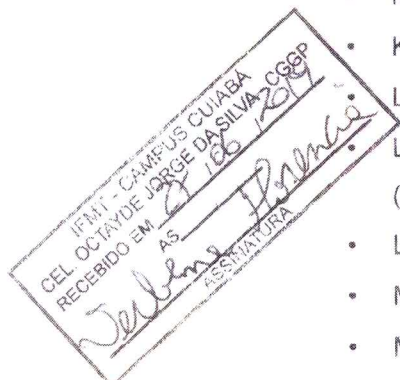 IFMT - CAMPUS CUIABÁ
CEL. OCTAYDE JORGE DA SILVA - CGGP
RECEBIDO EM / 06 / 2019
AS
ASSINATURA
K
L
L
(
L
M